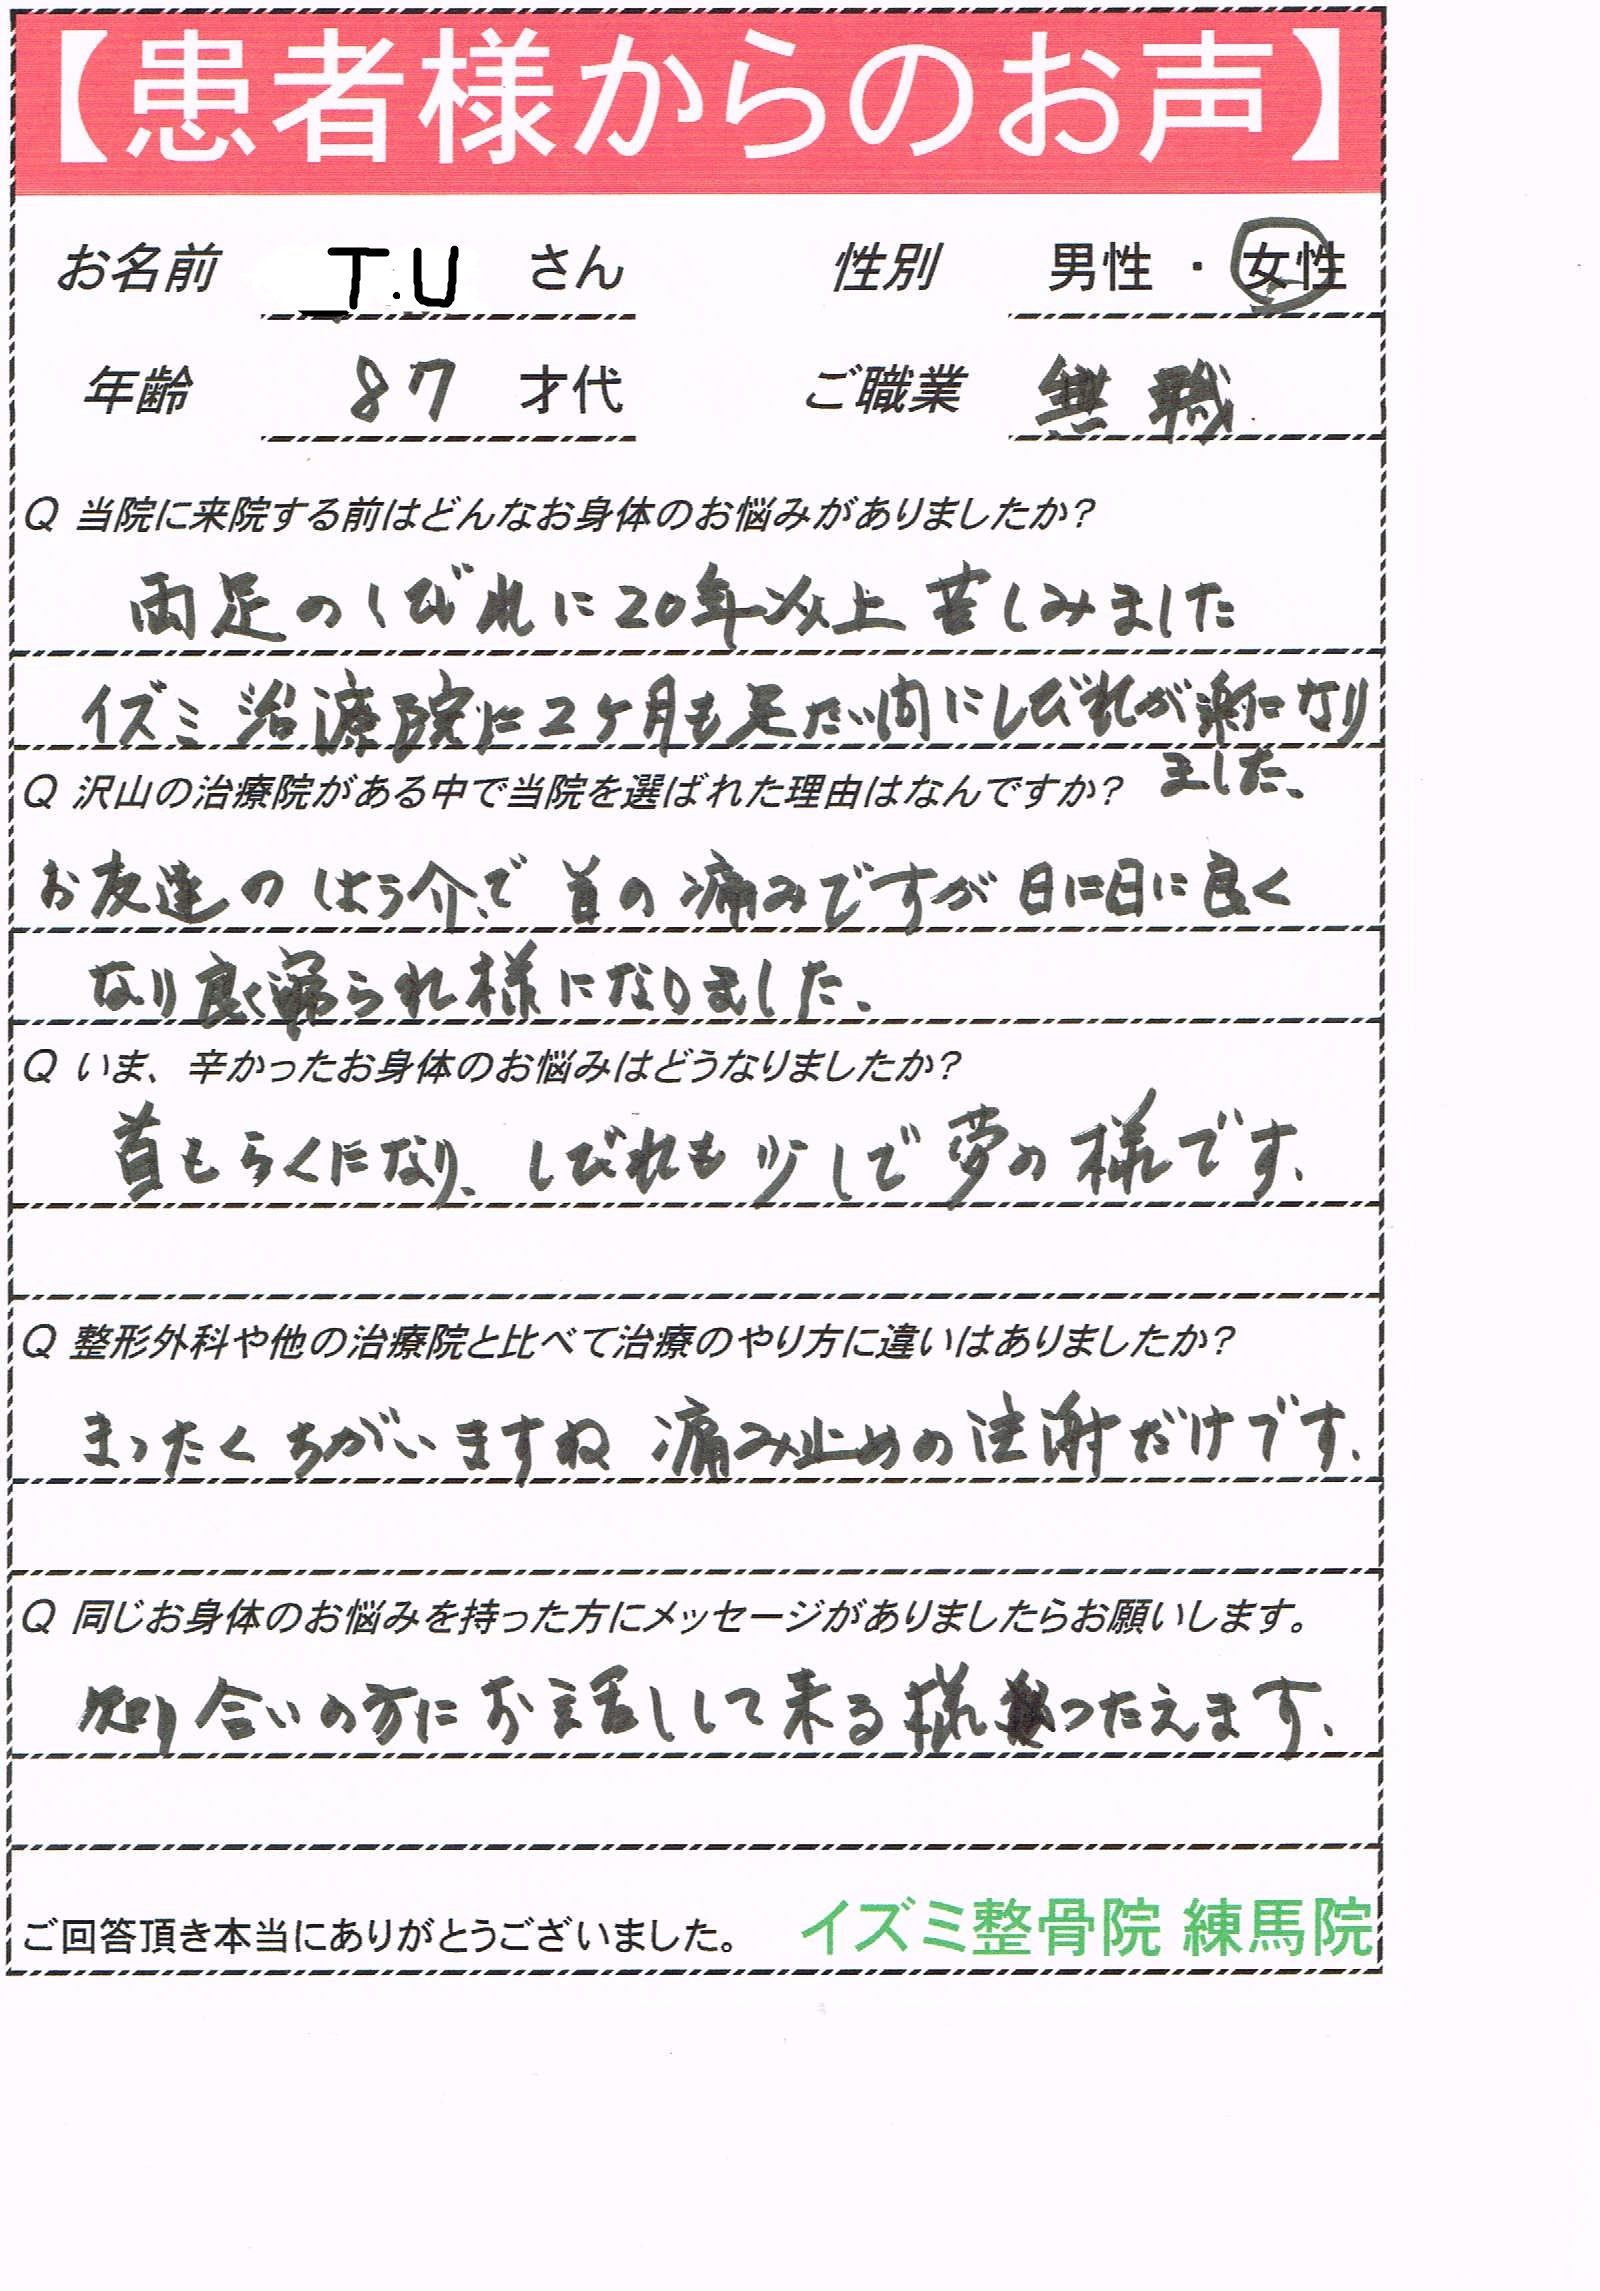 【患者様からのお声】
お名前 T.U さん 性別 男性 ・ 女性
年齢 87 才代 ご職業 無職
Q 当院に来院する前はどんなお身体のお悩みがありましたか?
両足のしびれに20年以上苦しみました
イズミ治療院に2ヶ月も足たい間にしびれが楽になり
ました、
Q 沢山の治療院がある中で当院を選ばれた理由はなんですか?
お友達のしょう介で首の痛みですが日に日に良く
なり良くられ様になりました、
Q いま、辛かったお身体のお悩みはどうなりましたか?
首もらくになり、しびれも少しで夢の様です、
Q 整形外科や他の治療院と比べて治療のやり方に違いはありましたか?
まったくちがいますね 痛み止めの注射だけです、
Q 同じお身体のお悩みを持った方にメッセージがありましたらお願いします。
知り合いの方にお話しして来る様つたえます、
ご回答頂き本当にありがとうございました。 イズミ整骨院 練馬院